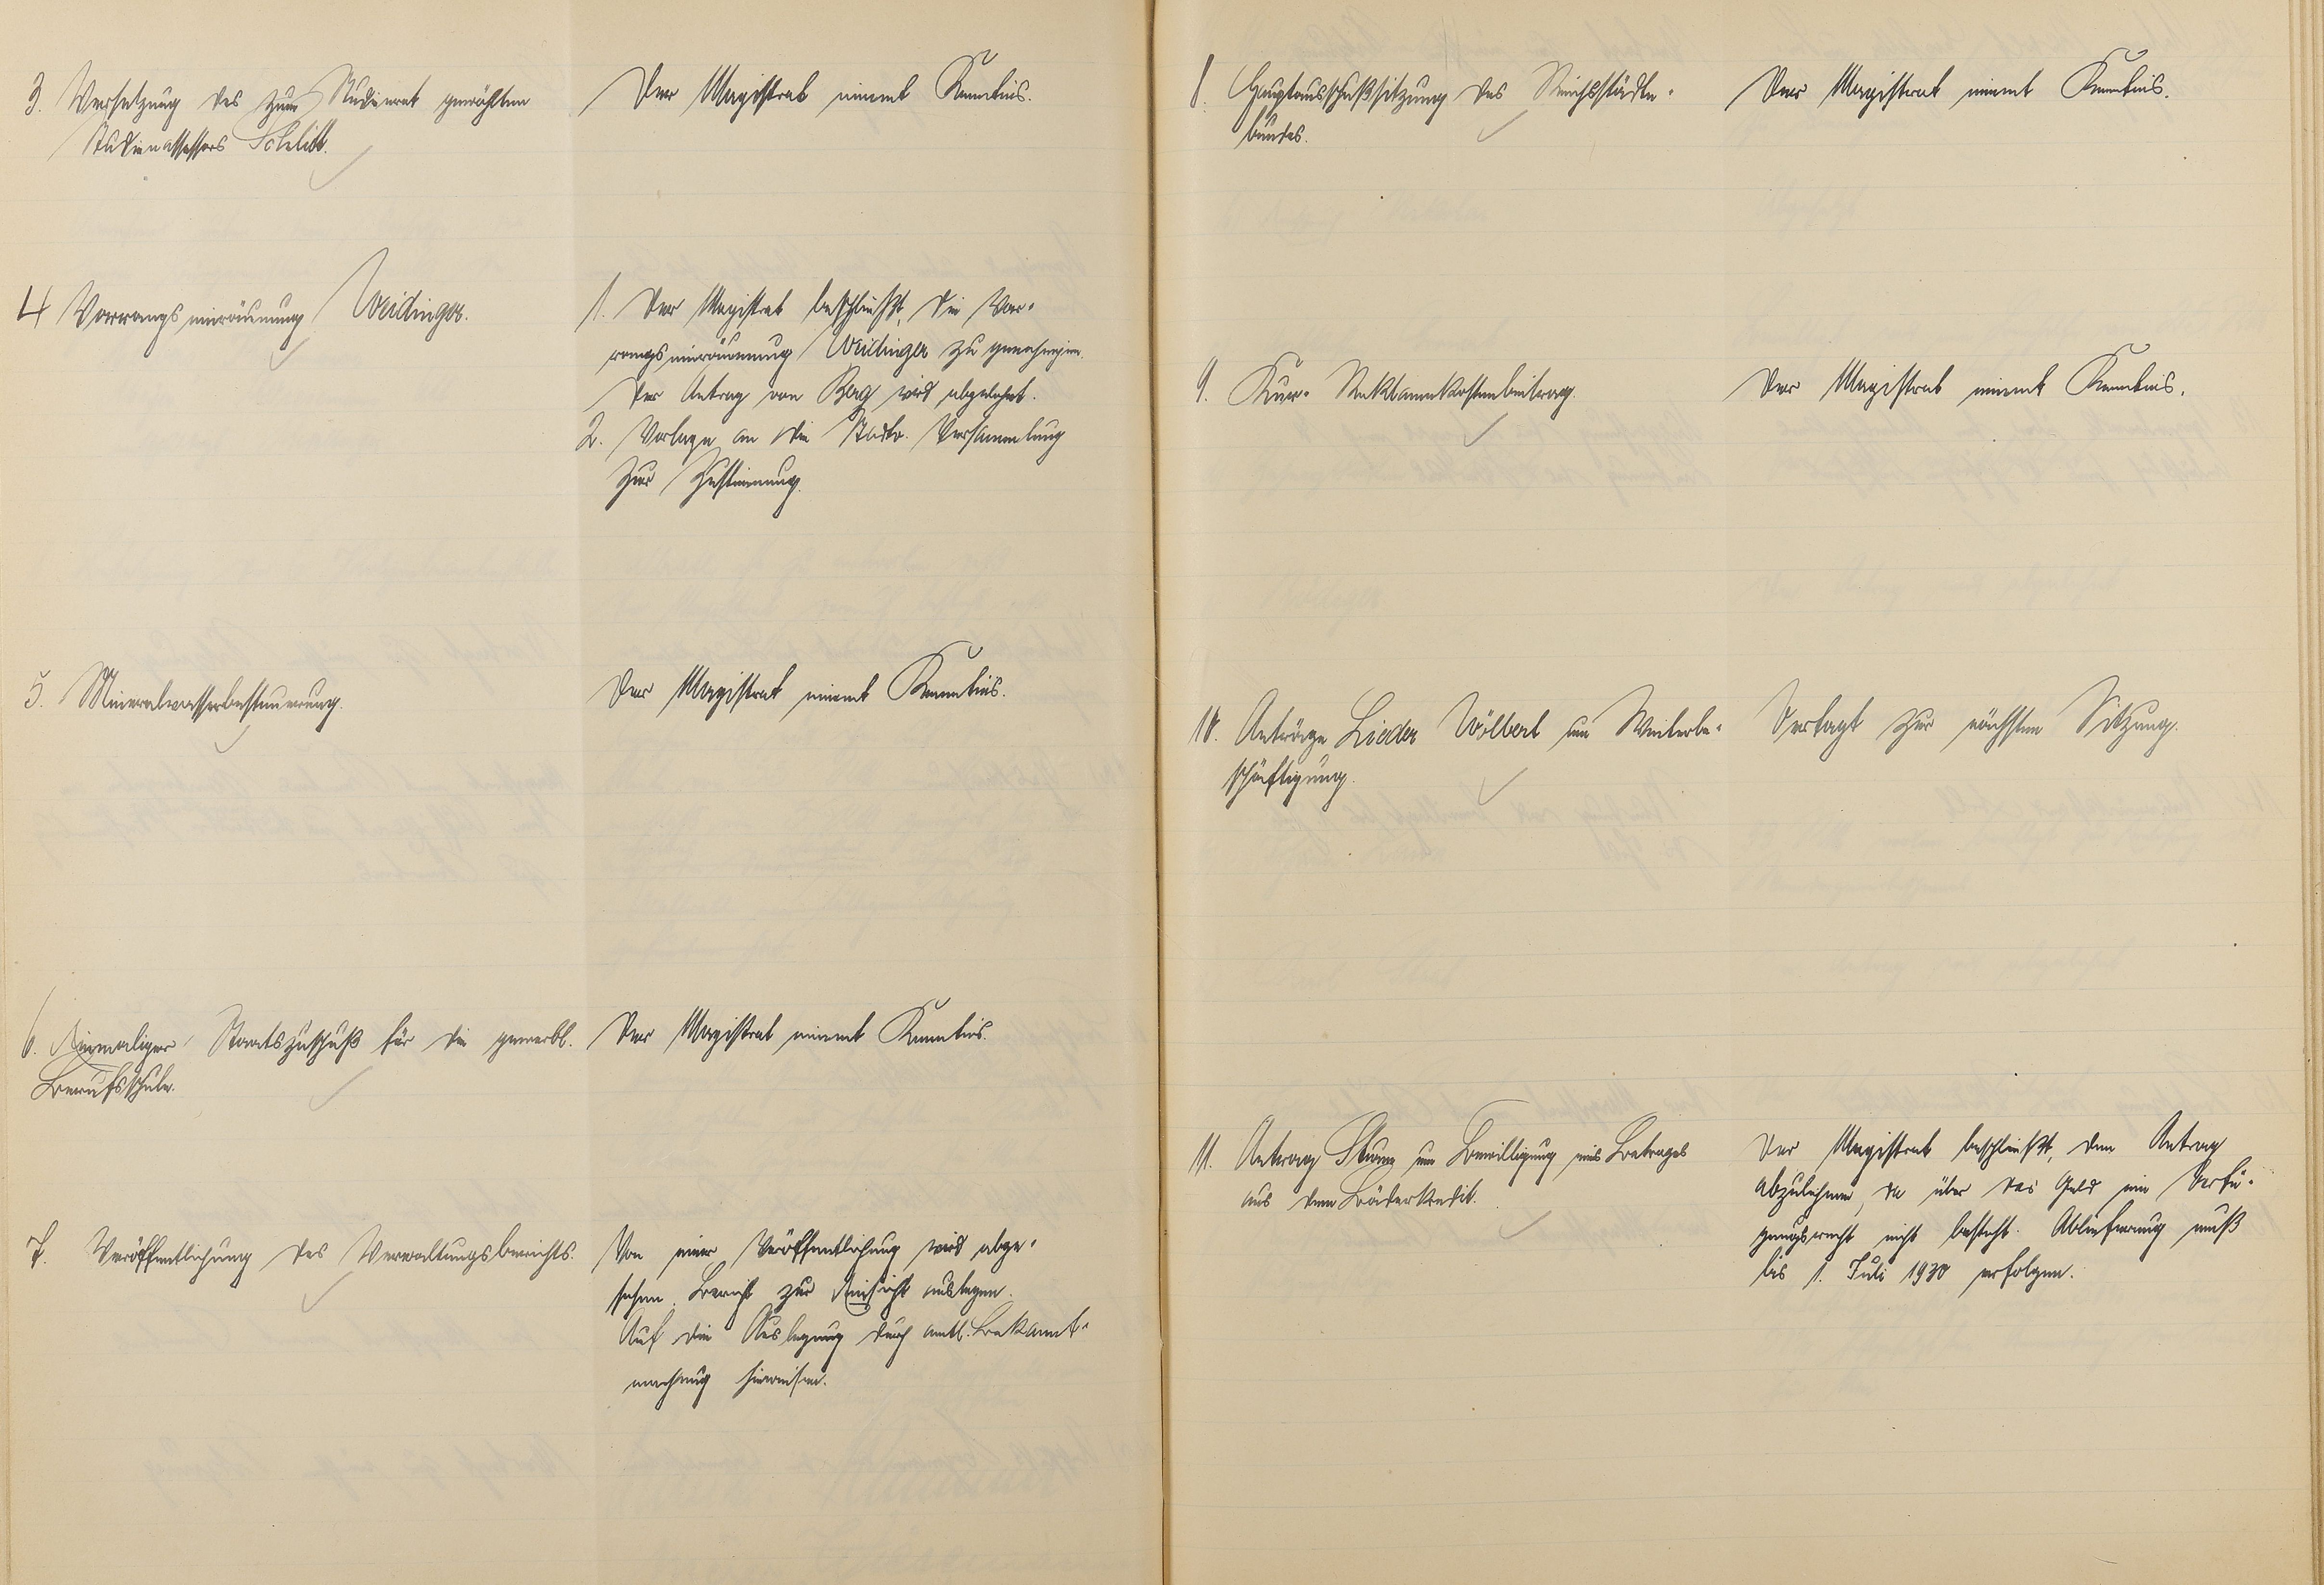 3. Versetzung des zum Studienrat gewählten
Studienassessors Schlitt.
Der Magistrat nimmt Kenntnis.
4 Vorrangseinräumung Weidinger.
1. Der Magistrat beschließt, die Vor-
rangseinräumung Weidinger zu genehmigen.
Der Antrag von Berg wird abgelehnt.
2. Vorlage an die Stadtv. Versammlung
zur Zustimmung.
5. Mineralwasserbesteuerung.
Der Magistrat nimmt Kenntnis.
6. Einmaliger Staatszuschuß für die gewerbl.
Berufsschule.
Der Magistrat nimmt Kenntnis.
7. Veröffentlichung des Verwaltungsberichts.
Von einer Veröffentlichung wird abge-
sehen. Bericht zur Einsicht auslegen.
Auf die Auslegung durch amtl. Bekannt-
machung hinweisen.
8. Hauptausschußsitzung des Reichsstädte-
bundes.
Der Magistrat nimmt Kenntnis.
9. Kur- Reklamekostenbeitrag.
Der Magistrat nimmt Kenntnis.
10. Anträge Lieder Wölbert um Weiterbe-
schäftigung.
Vertagt zur nächsten Sitzung.
11. Antrag Sturm um Bewilligung eines Betrages
aus dem Bäderkredit.
Der Magistrat beschließt, den Antrag
abzulehnen, da über das Geld ein Verfü-
gungsrecht nicht besteht. Ablieferung muß
bis 1. Juli 1930 erfolgen.